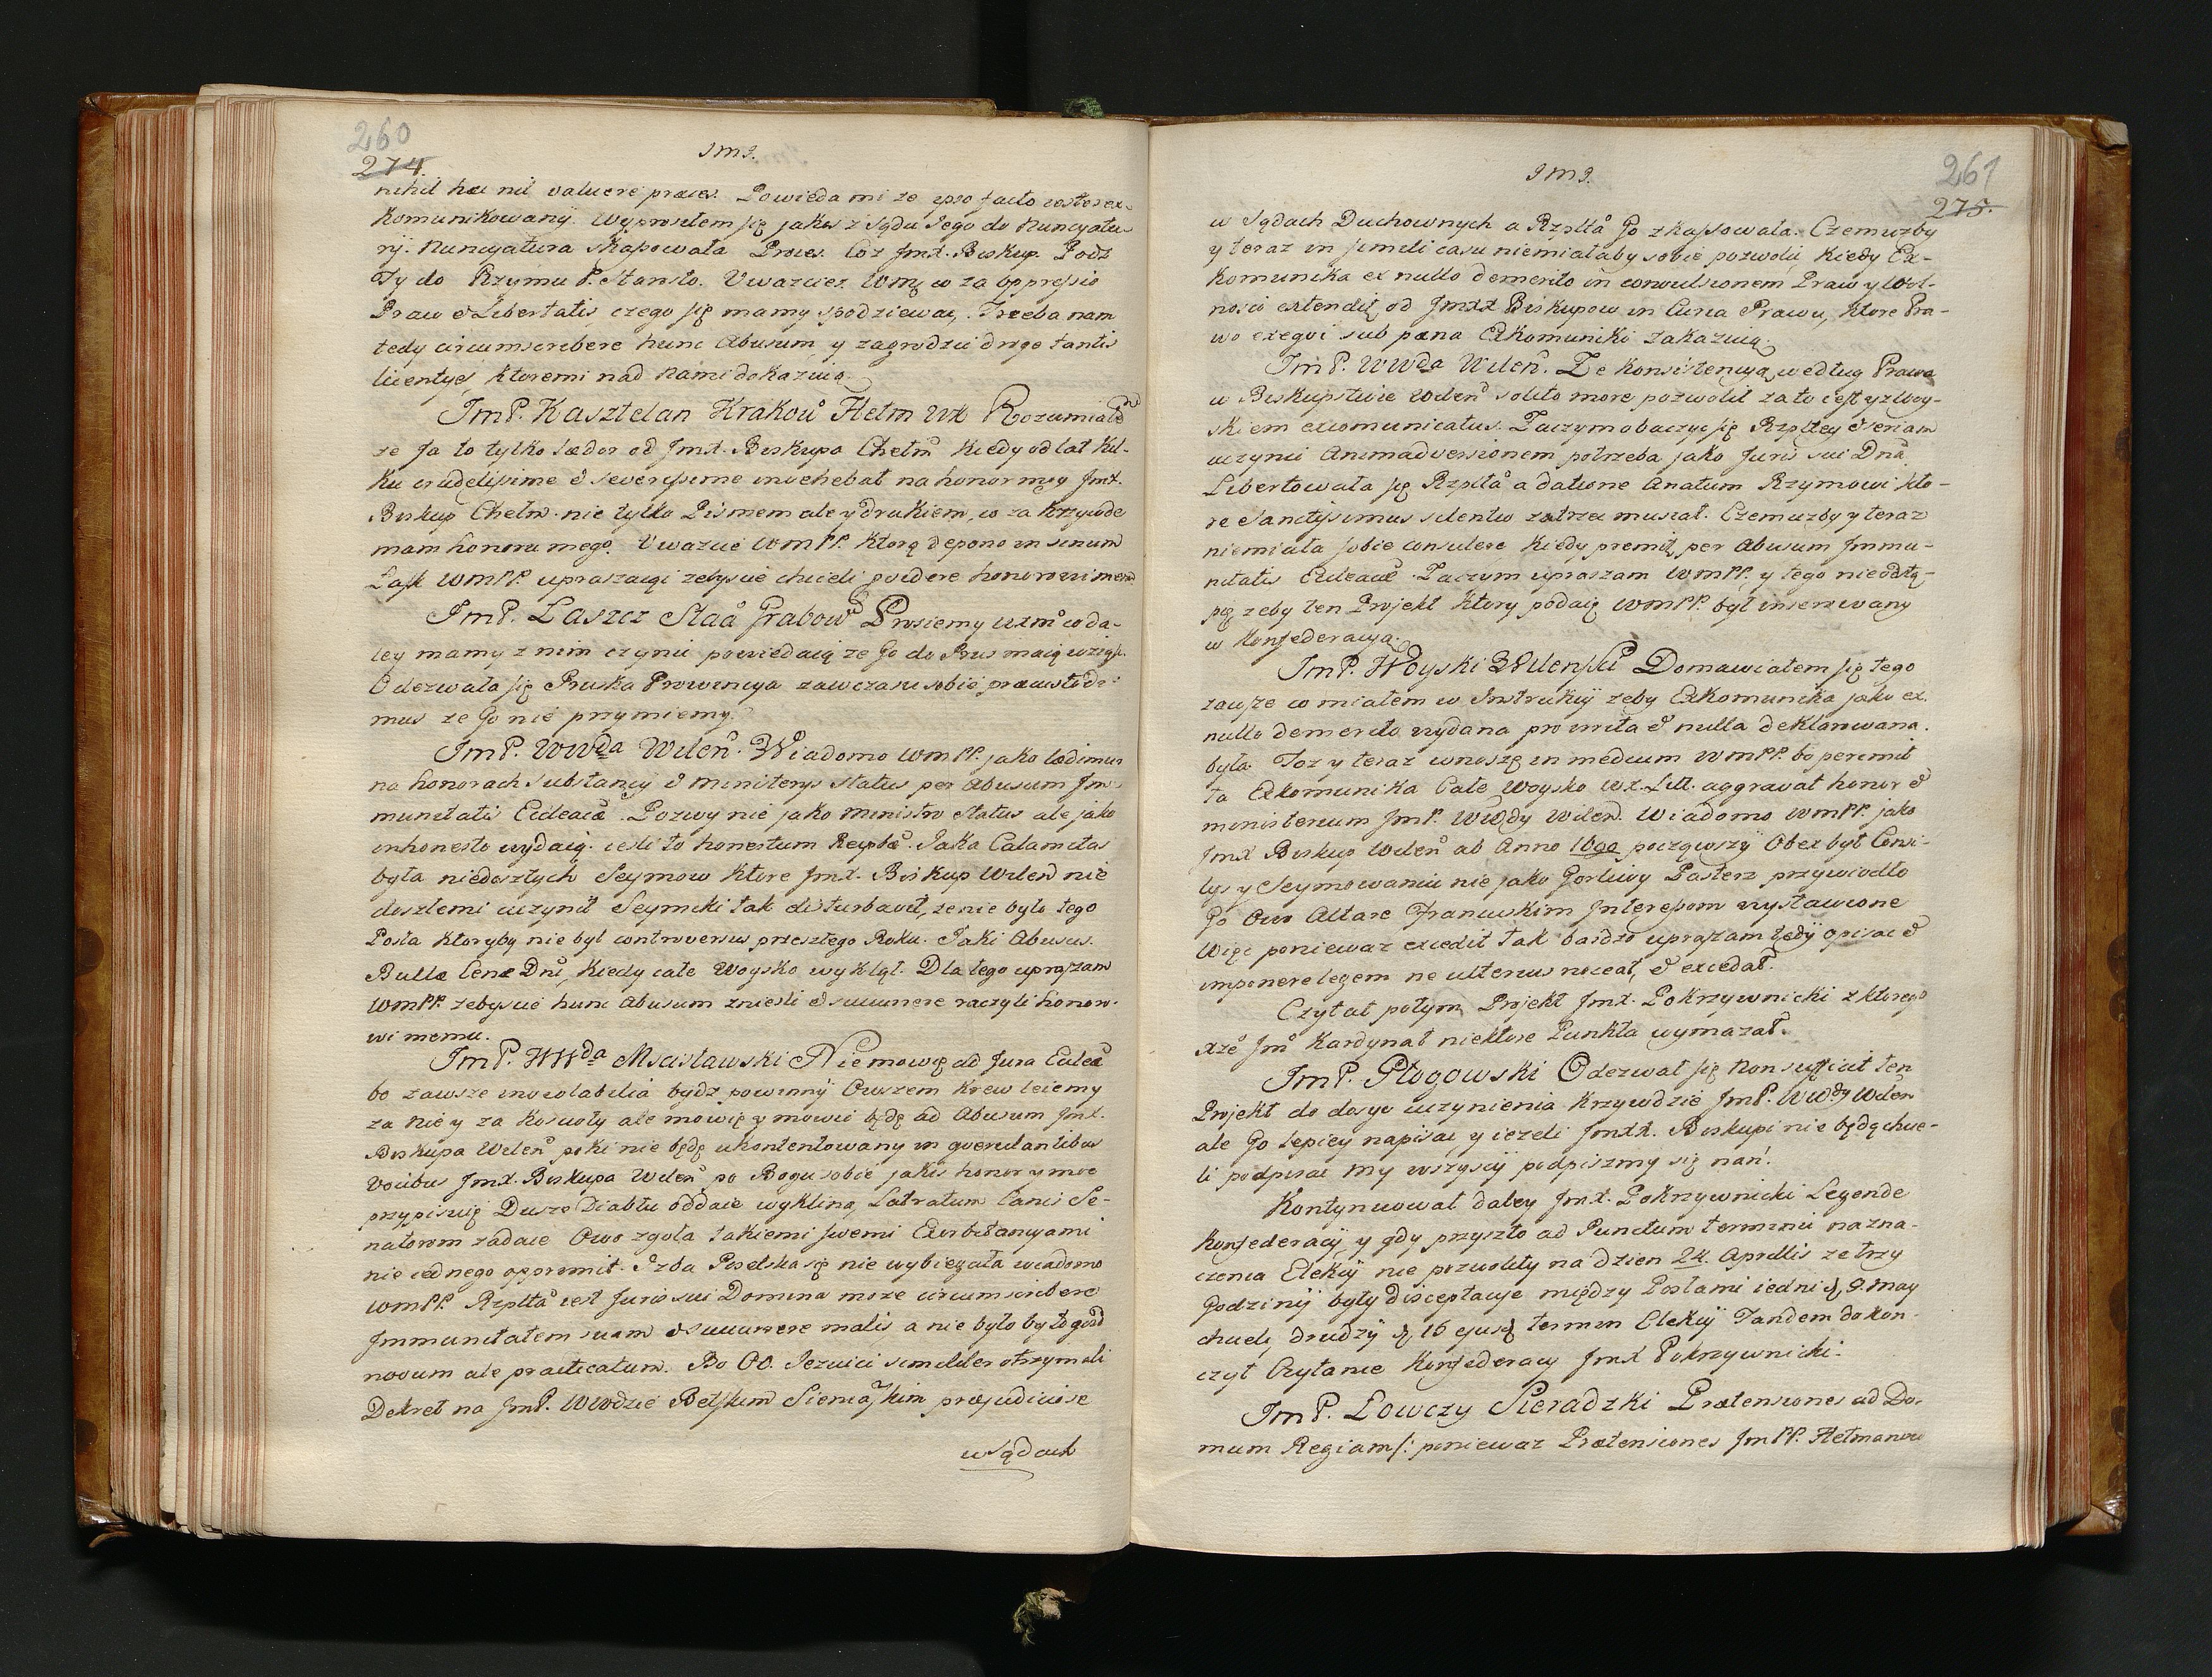 260
274.
Jmj.
nihil hæ nil valuere preces. Powieda mi że ipso facto iestes ex-
komunikowany. Wyprosiłem się jakos z sądu Jego do Nuncyatu-
ry. Nuncyatura skassowała Proces. Coż Jmx. Biskup. Podz
Ty do Rzymu P. Starosto. Uwazcież Wmć co za oppressio
Praw & Libertatis, czego się mamy spodziewać. Trzeba nam
tedy circumscribere hunc Abusum y zagrodzić drogę tantis
licentys, ktoremi nad nami dokazuią.
JmP. Kasztelan Krakow Hetm WK Rozumiałem
ze Ja to tylko lædor od Jmx. Biskupa Chełm kiedy od lat kil-
ku crudelissime & severissime invehebat na honor moy Jmx.
Biskup Chełm. nie tylko Pismem ale y drukiem, co za krzywde
mam honoru mego. Uwazcie WmPP. ktorą depono in sinum
Łask WmPP. upraszaiąc zebyscie chcieli providere honorowi memu
JmP. Łaszcz Staa Grabow Prosiemy uxm co da-
ley mamy z nim czynić powiedaią ze Go do Prus maią wziąść.
Odezwała się Pruska Prowincya zawczasu sobie præcustodi-
mus ze Go nie przymiemy.
JmP. WWda Wilen. Wiadomo WmPP. jako lædimur
na honorach substancÿ & Ministerys status per Abusum Im-
munitatis Ecleaæ. Pozwy nie jako Ministro Status ale jako
inhonesto wydaią. iesli to honestum Reyplæ. Jaka Calamitas
była niedoszłych Seymow ktore Jmx. Biskup Wilen nie
doszłemi uczynił Seymiki tak disturbavit, ze nie było tego
Posła ktoryby nie był controversus przeszłego Roku. Jaki Abusus
Bullæ Cenæ Dni, kiedy całe Woysko wyklął. Dla tego upraszam
WmPP. zebyscie hunc Abusum zniesli & succurrere raczyli honoro-
wi memu.
JmP. WWda Mscisławski Nie mowię ad Jura Eclea
bo zawsze inviolabilia bydz powinny Owszem krew leiemy
za nie y za koscioły ale mowię y mowić będę ad Abusum Jmx.
Biskupa Wilen poki nie będę ukontentowany in querulantibus
vocibus Jmx. Biskupa Wilen po Bogu sobie jakis honor y moc
przypisuię Dusze Diabłu oddaie wyklina, Latratum Canis Se-
natorom zadaie Owo zgoła takiemi swemi Exorbitancyami
nie iednego oppremit. Izba Poselska się nie wybiegała wiadomo
WmPP. Rzplta iest Juris sui Domina moze circumscribere
Immunitatem suam & succurrere malis a nie było by to quid
novum ale practicatum. Bo OO. Jezuici similiter otrzymali
Dekret na JmP. WWodzie Bełskim Sieniaskim præjudiciose
w Sądach
261
275.
Jmj.
w Sądach Duchownych a Rzplta Go zkassowała. Czemuzby
y teraz in simili casu niemiałaby sobie pozwolić, kiedy Ex-
komunika ex nullo demerito in convulsionem Praw y Wol-
nosci extendit od Jmxx Biskupow in Curia Prawu, ktore Pra-
wo exeqvi sub pæna Exkomuniki zakazuią.
JmP. WWda Wilen. Ze konsistencyą według Prawa
w Biskupstwie Wilen solito more pozwolił za to iest y z Woy-
skiem excomunicatus. Zaczym obaczyć się Rzpltey & seriam
uczynić Animadversionem potrzeba jako Juris sui Dna
Libertowała się Rzplta a datione Anatum Rzymowi kto-
re Sanctissimus silentio zatrzeć musiał. Czemuzby y teraz
niemiała sobie consulere kiedy premit per Abusum Immu-
nitatis Ecleaæ. Zaczym upraszam WmPP. y tego nieodstą-
pię zeby ten Projekt ktory podaię WmPP. był inserowany
w Konfederacyą.
JmP. Woyski Wilenski Domawiałem się tego
zawsze co miałem w Instrukcÿ zeby Exkomunika jako ex
nullo demerito wydana pro irrita & nulla deklarowana
była. Toz y teraz wnoszę in medium WmPP. bo peremit
ta Exkomunika Całe Woysko WX. Litt. aggravat honor &
ministerium JmP. WWody Wilen. Wiadomo WmPP. jako
Jmx Biskup Wilen ab Anno 1690 począwszÿ Obex był Consi-
lys y Seymowaniu nie jako Gorliwy Pasterz przywiodło
Go Owo Altare Francuskim Interessom wystawione
Więc poniewaz excedit tak bardzo upraszam tędÿ opisać &
imponere legem ne ulterius noceat, & excedat.
Czytał potym Projekt Jmx. Pokrzywnicki z ktorego
xże Jm Kardynał niektore Punkta wymazał.
JmP. Głogowski Odezwał się Non sufficit ten
Projekt do dosyc uczynienia krzywdzie JmP. WWdy Wilen
ale Go lepiey napisać y iezeli Jmxx. Biskupi nie będą chcie-
li podpisać My wszyscÿ podpiszmy się nań.
Kontynuował daley Jmx. Pokrzywnicki Legende
Konfederacÿ y gdy przyszło ad Punctum terminu nazna-
czenia Elekcÿ nie pozwolily na dzien 24. Aprilis ze trzy
Godzinÿ były disceptacye między Posłami iedni 9. may
chcieli, drudzÿ 16 ejusd termin Elekcÿ Tandem dokon-
czył Czytanie Konfederacy Jmx Pokrzywnicki.
JmP. Łowczy Sieradzki Prætensiones ad Do-
mum Regiam /: poniewaz Prætensiones JmPP. Hetmanow